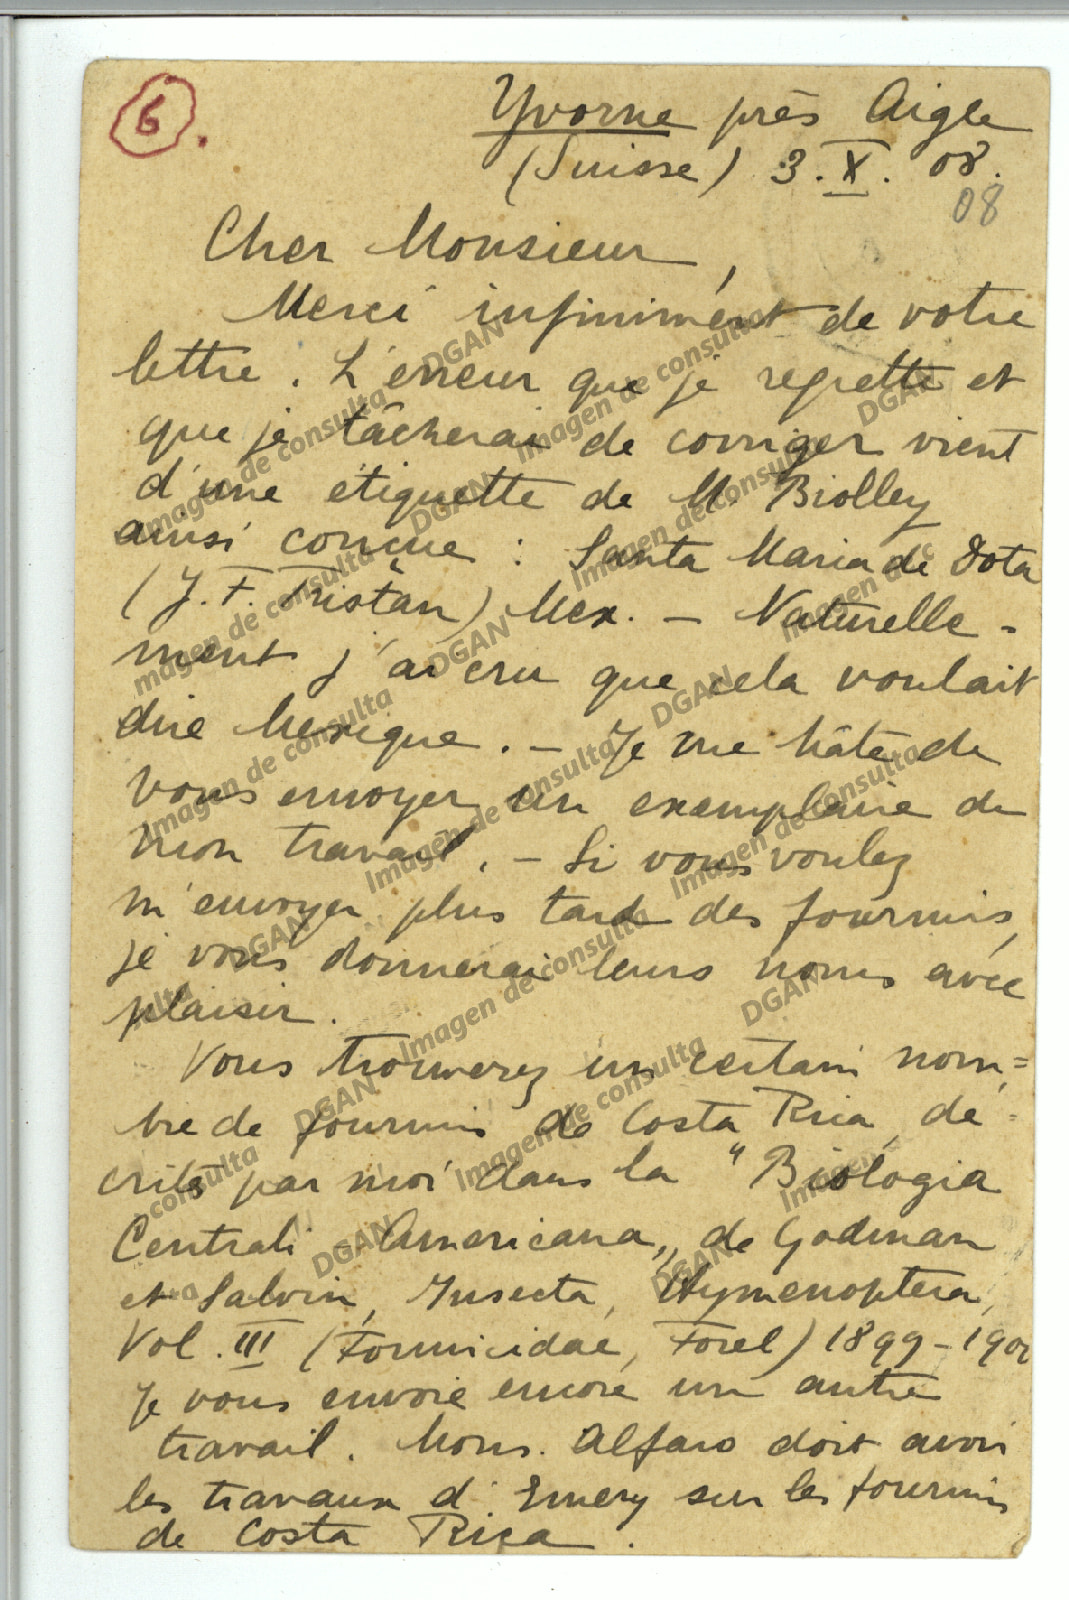 6.
Yvorne près Aigle
(Suisse) 3. X. 08.
08
Cher Monsieur,
Merci infiniment de votre
lettre. L'erreur que je regrette et
que je tâcherai de corriger vient
d'une étiquette de M. Biolley
ainsi concue : Santa Maria de Dota
(J. F. Tristan) Mex. — Naturelle-
ment j'ai cru que cela voulait
dire Mexique. — Je me hâte de
vous envoyer un exemplaire de
mon travail. — Si vous voulez
m'envoyer plus tard des fourmis,
je vous donnerai leurs noms avec
plaisir.
Vous trouverez un certain nom=
bre de fourmis de Costa Rica, dé-
crites par moi dans la "Biologia
Centrali-Americana„ de Godman
et Salvin, Insecta, Hymenoptera,
Vol. III (Formicidae, Forel) 1899-1900
Je vous envoie encore un autre
travail. Mons. Alfaro doit avoir
les travaux d'Emery sur les fourmis
de Costa Rica.